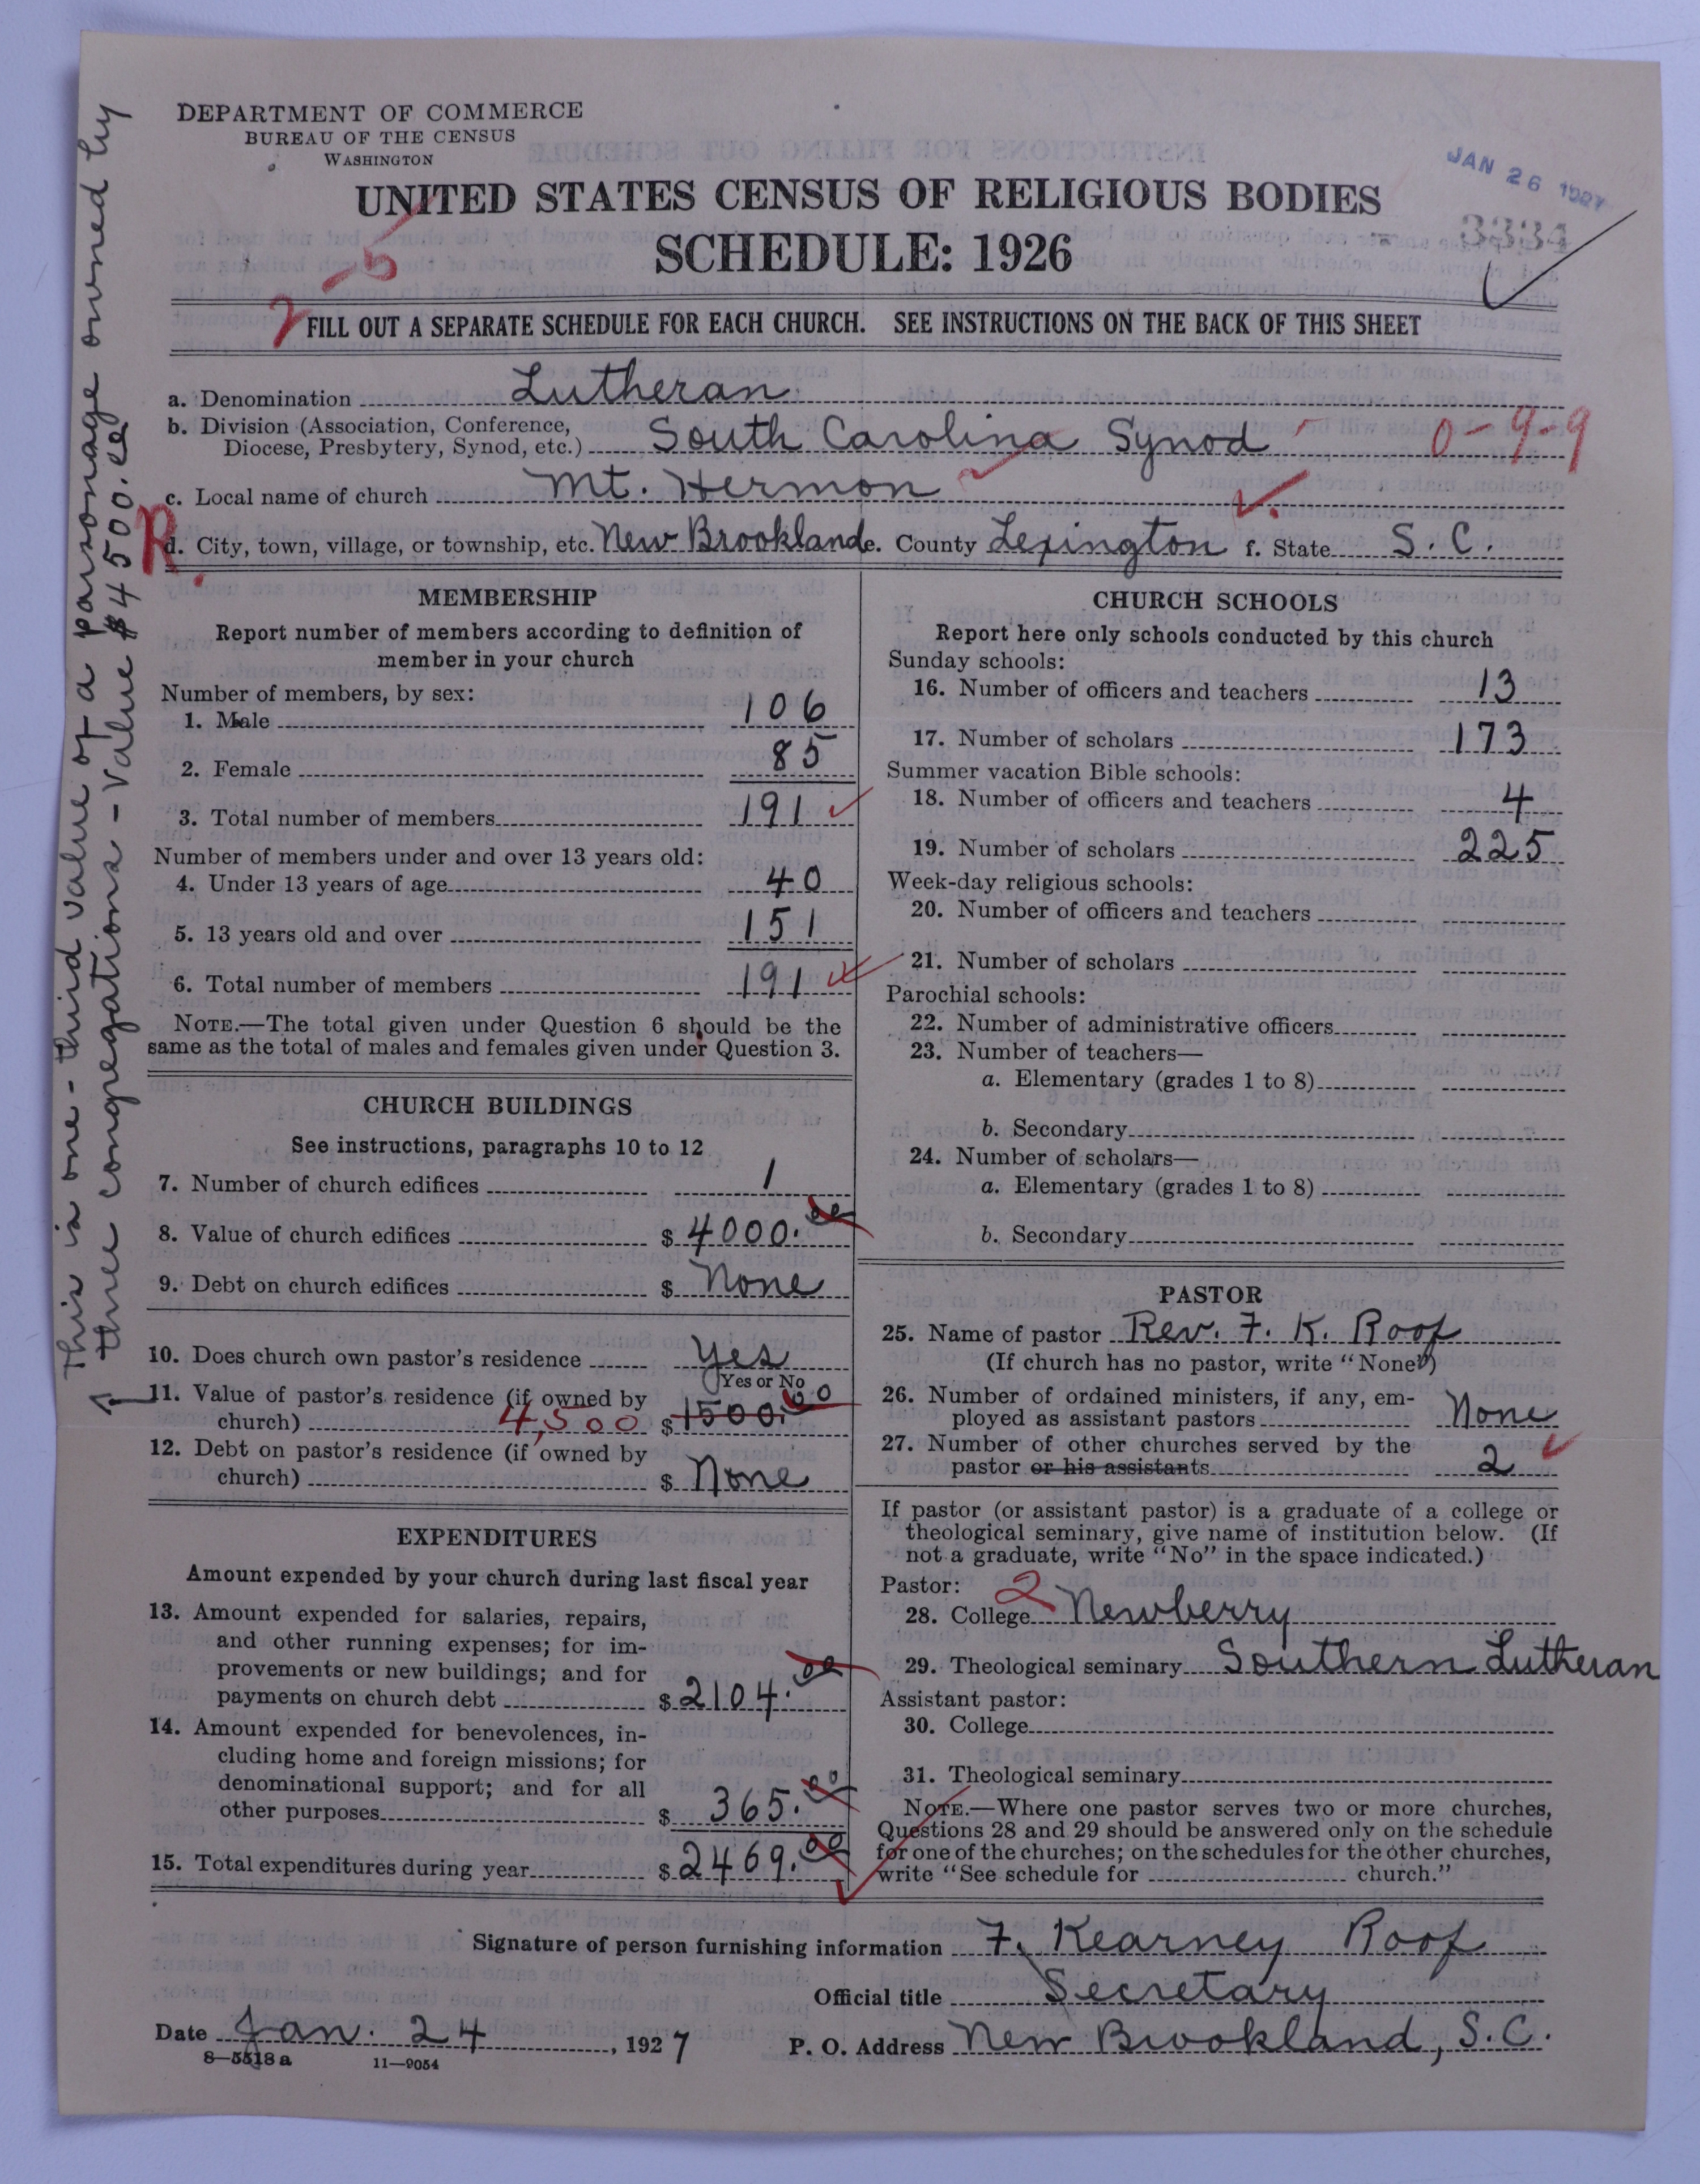 DEPARTMENT OF COMMERCE
BUREAU OF THE CENSUS
WASHINGTON
JAN 26 1927
UNITED STATES CENSUS OF RELIGIOUS BODIES
3334
SCHEDULE: 1926
2-5
FILL OUT A SEPARATE SCHEDULE FOR EACH CHURCH. SEE INSTRUCTIONS ON THE BACK OF THIS SHEET
a. Denomination Lutheran
b. Division (Association, Conference,
Diocese, Presbytery, Synod, etc.) South Carolina Synod 0-9-9
c. Local name of church Mt. Hermon
R.
d. City, town, village, or township, etc. New Brookland e. County Lexington f. State S. C.
This is one-third value of a parsonage owned by
three congregations - Value $4500.00
MEMBERSHIP
Report number of members according to definition of
member in your church
Number of members, by sex:
1. Male 106
2. Female 85
3. Total number of members 191
Number of members under and over 13 years old:
4. Under 13 years of age 40
5. 13 years old and over 151
6. Total number of members 191
NOTE.—The total given under Question 6 should be the
same as the total of males and females given under Question 3.
CHURCH BUILDINGS
See instructions, paragraphs 10 to 12
7. Number of church edifices 1
8. Value of church edifices $ 4000.00
9. Debt on church edifices $ None
10. Does church own pastor's residence Yes
(Yes or No)
11. Value of pastor's residence (if owned by
church) 4,500 $ 1500.00
12. Debt on pastor's residence (if owned by
church) $ None
EXPENDITURES
Amount expended by your church during last fiscal year
13. Amount expended for salaries, repairs,
and other running expenses; for im-
provements or new buildings; and for
payments on church debt $ 2104.00
14. Amount expended for benevolences, in-
cluding home and foreign missions; for
denominational support; and for all
other purposes $ 365.00
15. Total expenditures during year $ 2469.00
CHURCH SCHOOLS
Report here only schools conducted by this church
Sunday schools:
16. Number of officers and teachers 13
17. Number of scholars 173
Summer vacation Bible schools:
18. Number of officers and teachers 4
19. Number of scholars 225
Week-day religious schools:
20. Number of officers and teachers
21. Number of scholars
Parochial schools:
22. Number of administrative officers
23. Number of teachers—
a. Elementary (grades 1 to 8)
b. Secondary
24. Number of scholars—
a. Elementary (grades 1 to 8)
b. Secondary
PASTOR
25. Name of pastor Rev. F. K. Roof
(If church has no pastor, write "None")
26. Number of ordained ministers, if any, em-
ployed as assistant pastors None
27. Number of other churches served by the
pastor or his assistants 2
If pastor (or assistant pastor) is a graduate of a college or
theological seminary, give name of institution below. (If
not a graduate, write "No" in the space indicated.)
Pastor: 2
28. College Newberry
29. Theological seminary Southern Lutheran
Assistant pastor:
30. College
31. Theological seminary
NOTE.—Where one pastor serves two or more churches,
Questions 28 and 29 should be answered only on the schedule
for one of the churches; on the schedules for the other churches,
write "See schedule for church."
Signature of person furnishing information F. Kearney Roof
Official title Secretary
Date Jan. 24, 1927 P. O. Address New Brookland, S.C.
8—5518a 11—9054